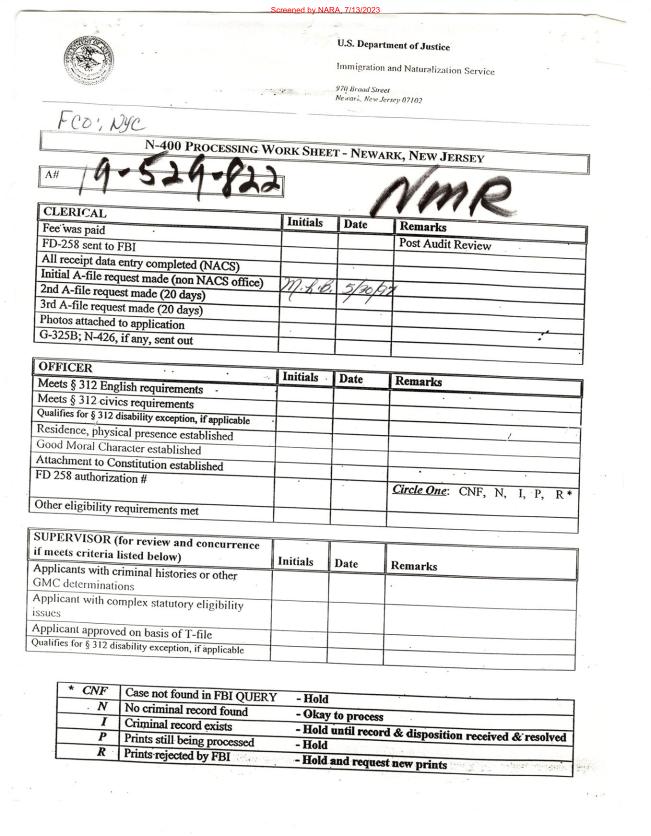 Screened by NARA, 7/13/2023
U.S. Department of Justice
Immigration and Naturalization Service
970 Broad Street
Newark, New Jersey 07102
FCO: NYC
N-400 PROCESSING WORK SHEET - NEWARK, NEW JERSEY
A# 19-529-822
NMR
CLERICAL Initials Date Remarks
Fee was paid
FD-258 sent to FBI Post Audit Review
All receipt data entry completed (NACS)
Initial A-file request made (non NACS office) M.L.B. 5/20/97
2nd A-file request made (20 days)
3rd A-file request made (20 days)
Photos attached to application
G-325B; N-426, if any, sent out
OFFICER Initials Date Remarks
Meets § 312 English requirements
Meets § 312 civics requirements
Qualifies for § 312 disability exception, if applicable
Residence, physical presence established
Good Moral Character established
Attachment to Constitution established
FD 258 authorization # Circle One: CNF, N, I, P, R*
Other eligibility requirements met
SUPERVISOR (for review and concurrence
if meets criteria listed below) Initials Date Remarks
Applicants with criminal histories or other
GMC determinations
Applicant with complex statutory eligibility
issues
Applicant approved on basis of T-file
Qualifies for § 312 disability exception, if applicable
* CNF Case not found in FBI QUERY - Hold
N No criminal record found - Okay to process
I Criminal record exists - Hold until record & disposition received & resolved
P Prints still being processed - Hold
R Prints rejected by FBI - Hold and request new prints